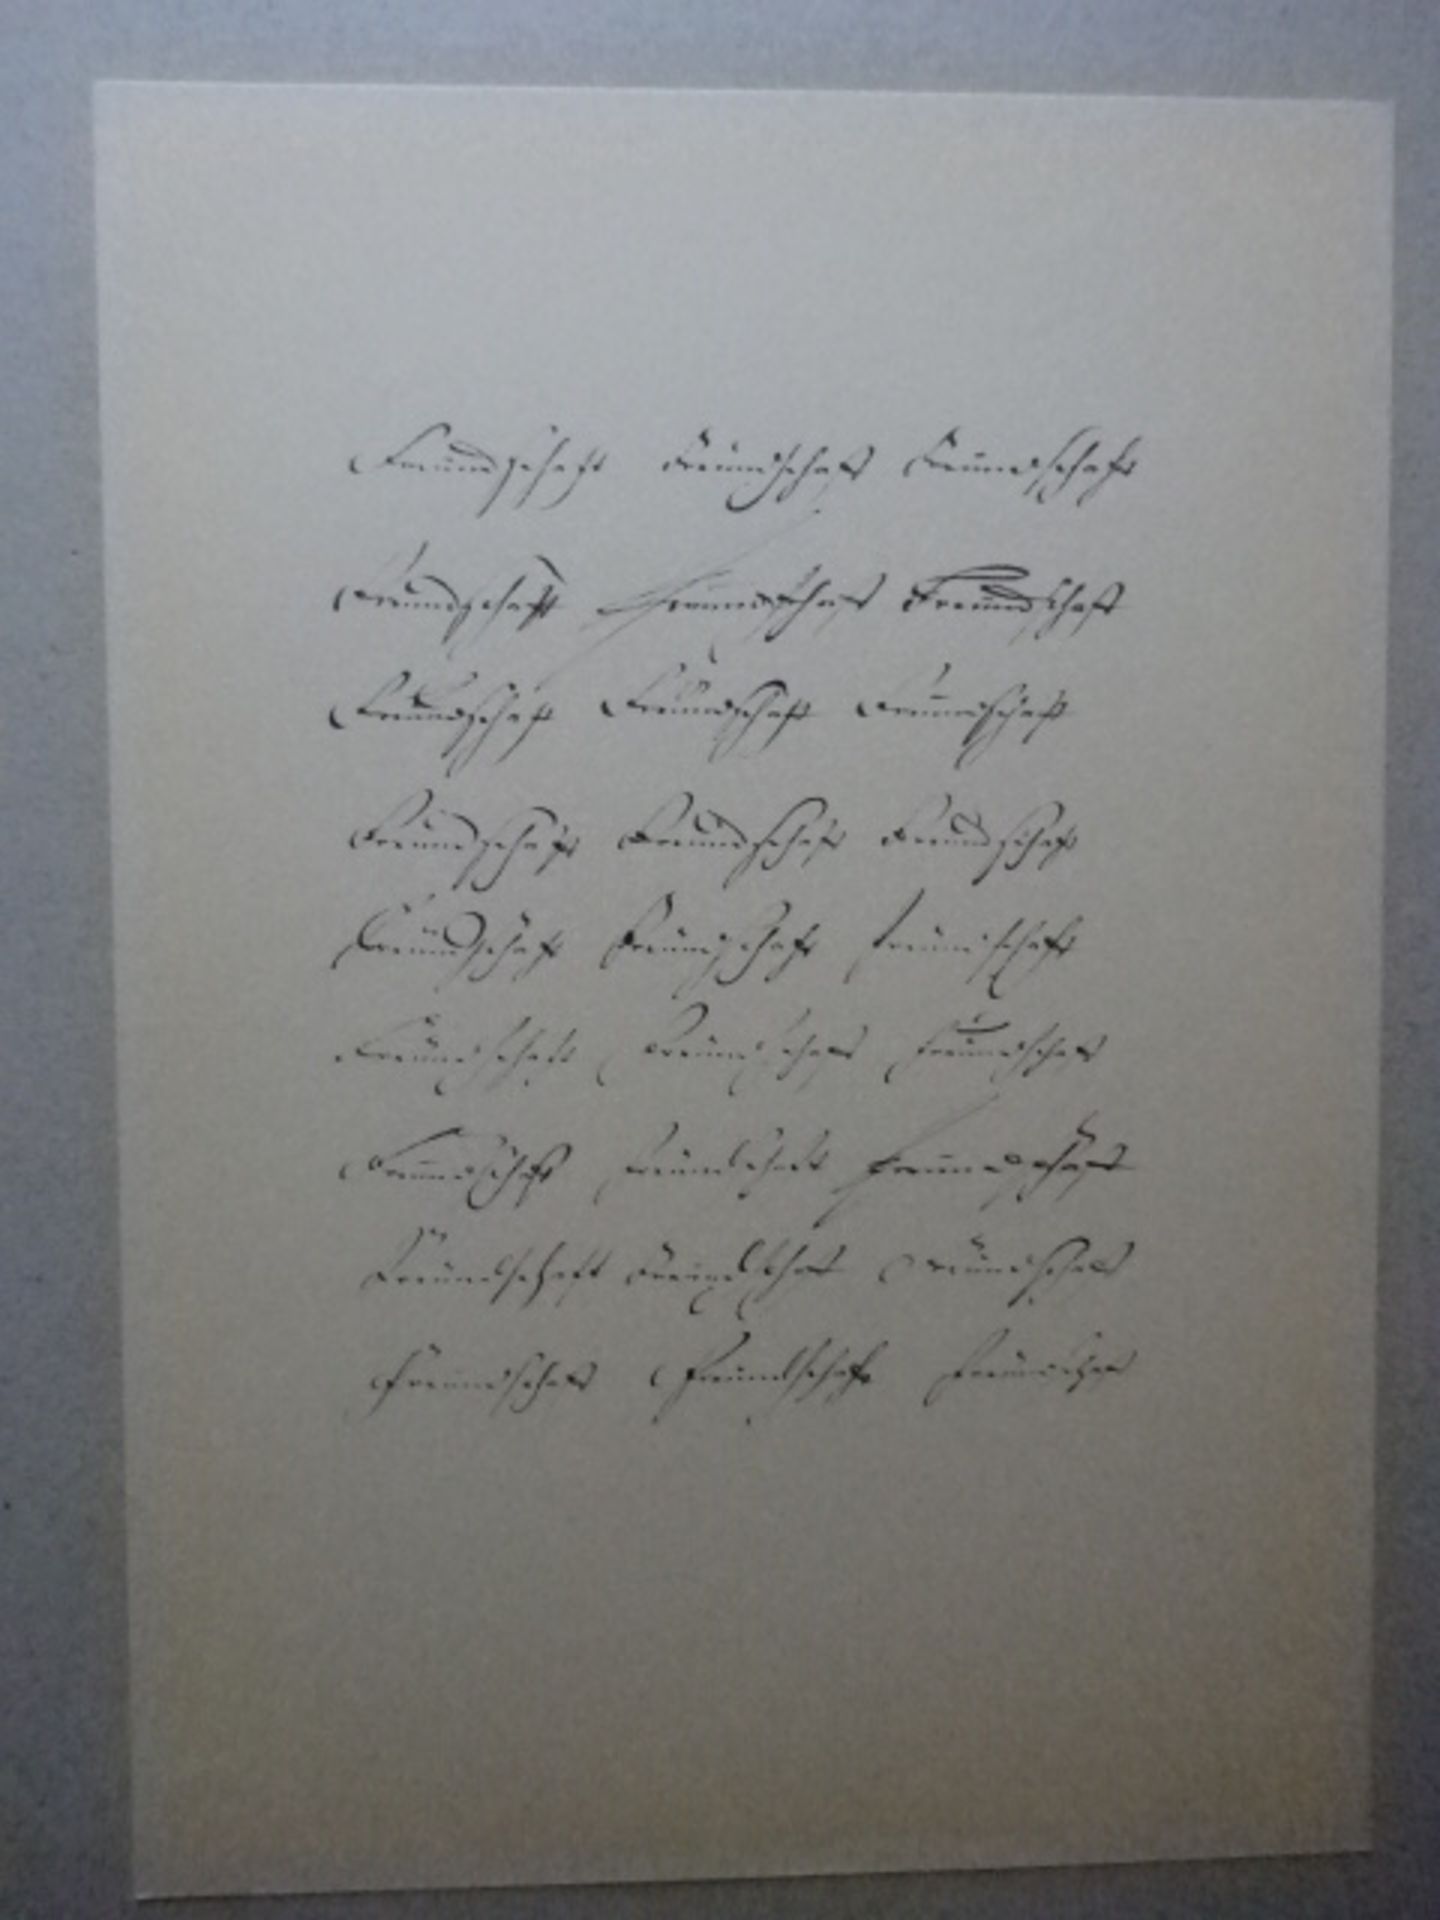 Freundschaft Freundschaft Freundschaft
Freundschaft Freundschaft Freundschaft
Freundschaft Freundschaft Freundschaft
Freundschaft Freundschaft Freundschaft
Freundschaft Freundschaft Freundschaft
Freundschaft Freundschaft Freundschaft
Freundschaft Freundschaft Freundschaft
Freundschaft Freundschaft Freundschaft
Freundschaft Freundschaft Freundschaft